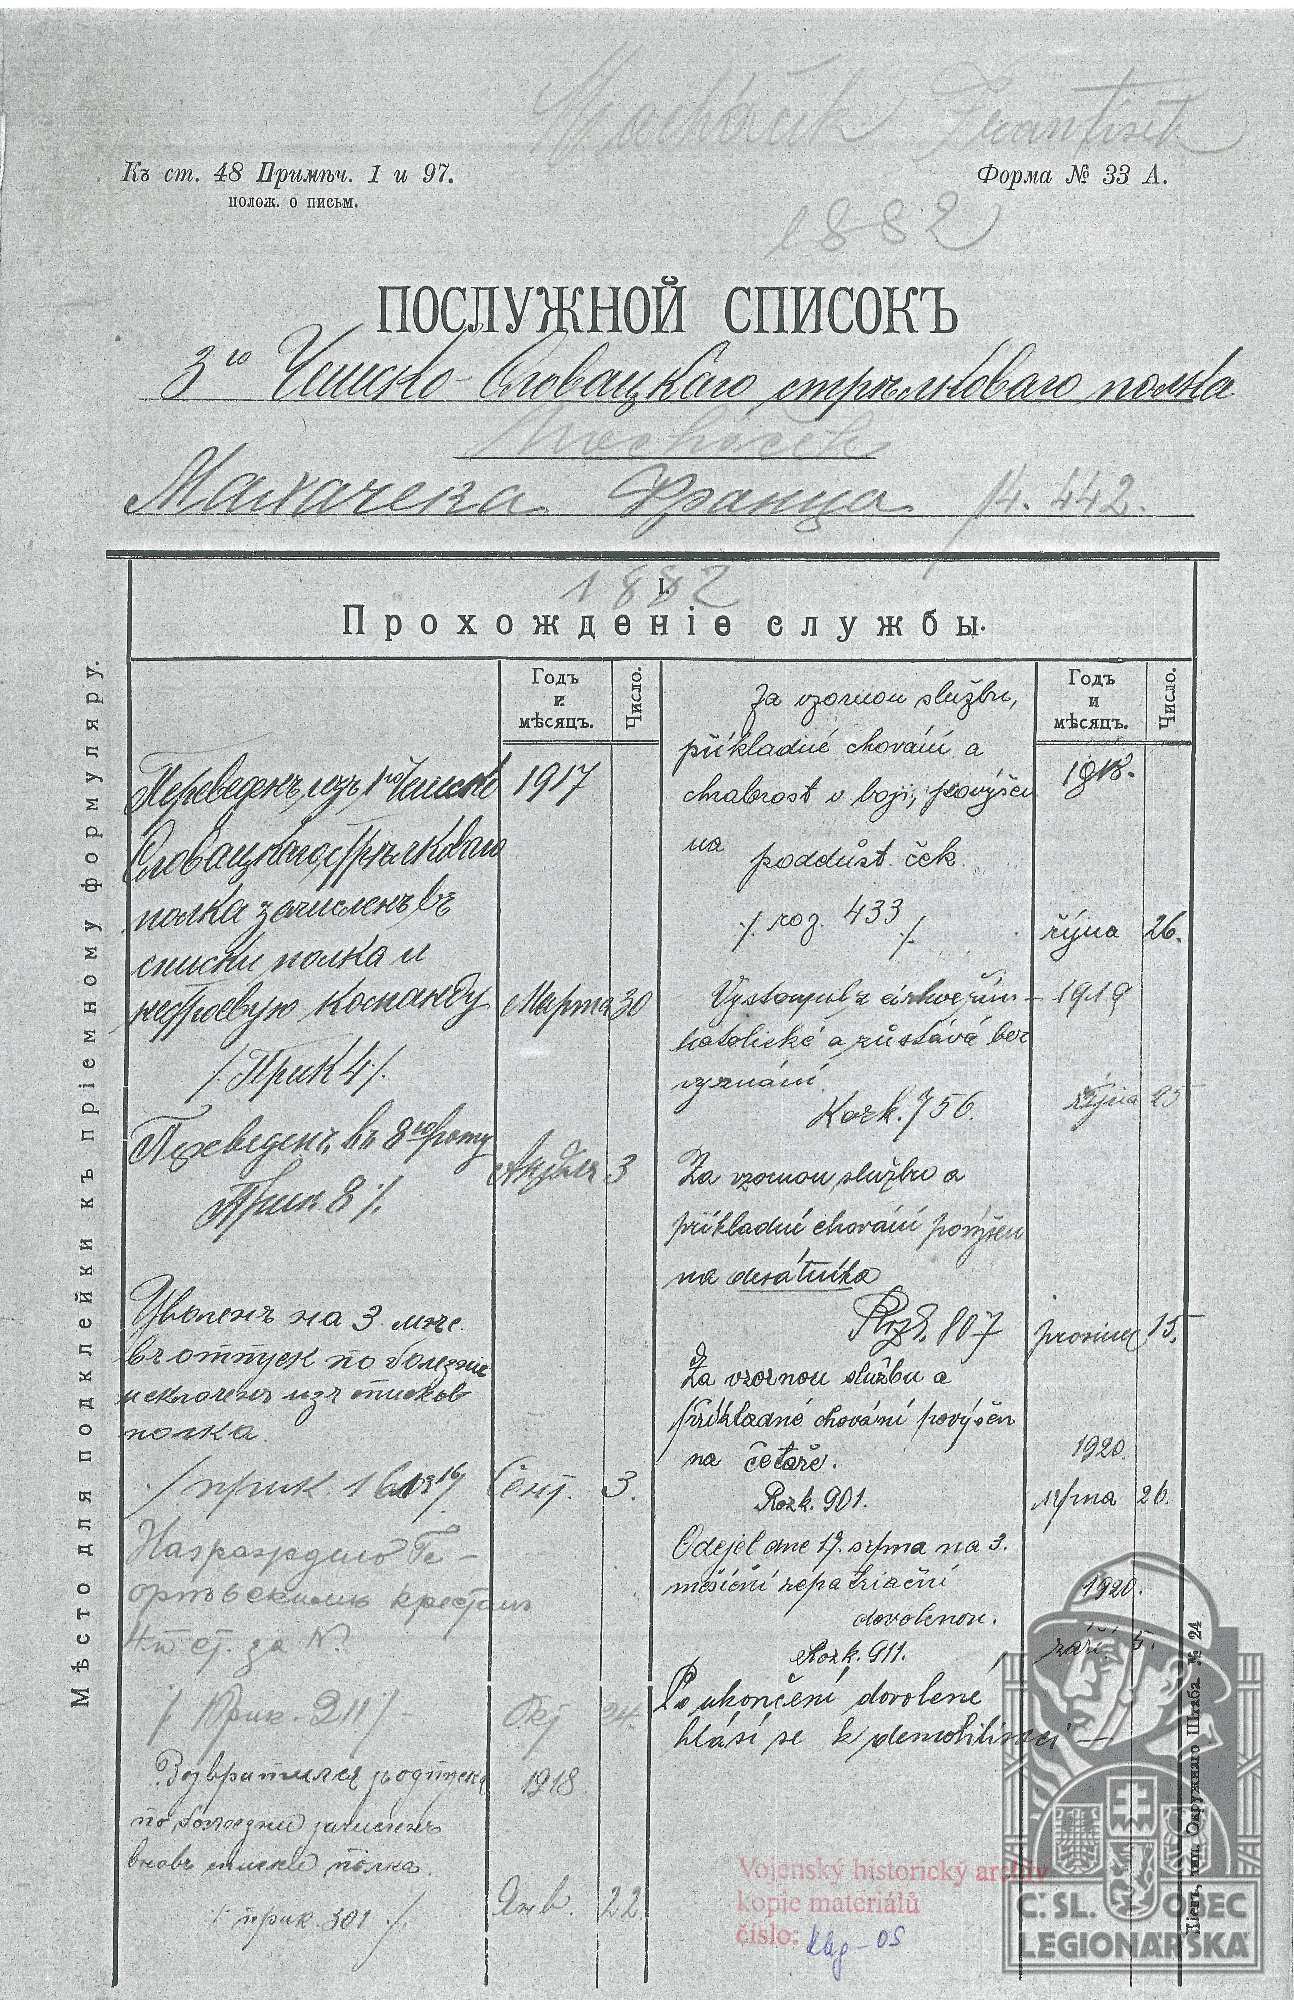 Macháček František
Къ ст. 48 Примѣч. 1 и 97.
полож. о письм.
Форма № 33 А.
1882
ПОСЛУЖНОЙ СПИСОКЪ
3го Чешско-Словацкаго стрѣлковаго полка
Macháček
Махачека Франца 14.442.
1882
I.
Прохожденіе службы.
Мѣсто для подклейки къ пріемному формуляру.
Годъ и мѣсяцъ.
Число.
Переведенъ изъ 1го Чешско 1917
Словацкаго стрѣлковаго
полка зачисленъ въ
списки полка и
нестроевую команду Марта 30
/. Прик 4 /.
Переведенъ въ 8ую роту
Апрѣля 3
Прик 8 /.
Уволенъ на 3 мѣс.
въ отпуск по болезни
исключенъ изъ списков
полка.
/ прик 161 Сент. 3.
Награжденъ Ге-
оргіевскимъ крестомъ
4й ст. за №
/ Прик. 211 / Окт 24.
Возвратился изъ отпуска 1918
по болезни зачисленъ
вновь списки полка
/. прик. 301 /. Янв. 22
Годъ и мѣсяцъ.
Число.
Za vzornou službu,
příkladné chování a 1918.
chrabrost v boji, povýšen
na poddůst. ček.
/. roz. 433 /. října 26.
Vystoupil z církve řím- 1919
katolické a zůstává bez
vyznání.
Rozk. 756. října 25
Za vzornou službu a
příkladné chování povýšen
na desátníka
Rozk. 807 prosince 15.
Za vzornou službu a
příkladné chování povýšen
na četaře. 1920.
Rozk. 901. srpna 26.
Odejel dne 17. srpna na 3.
měsíční repatriační 1920.
dovolenou.
Rozk. 911. září 5.
Po ukončení dovolené
hlásí se k demobilisaci —
Vojenský historický archiv
kopie materiálů
číslo:
Č.SL. OBEC
LEGIONÁŘSKÁ
Окружнаго Штаба № 24